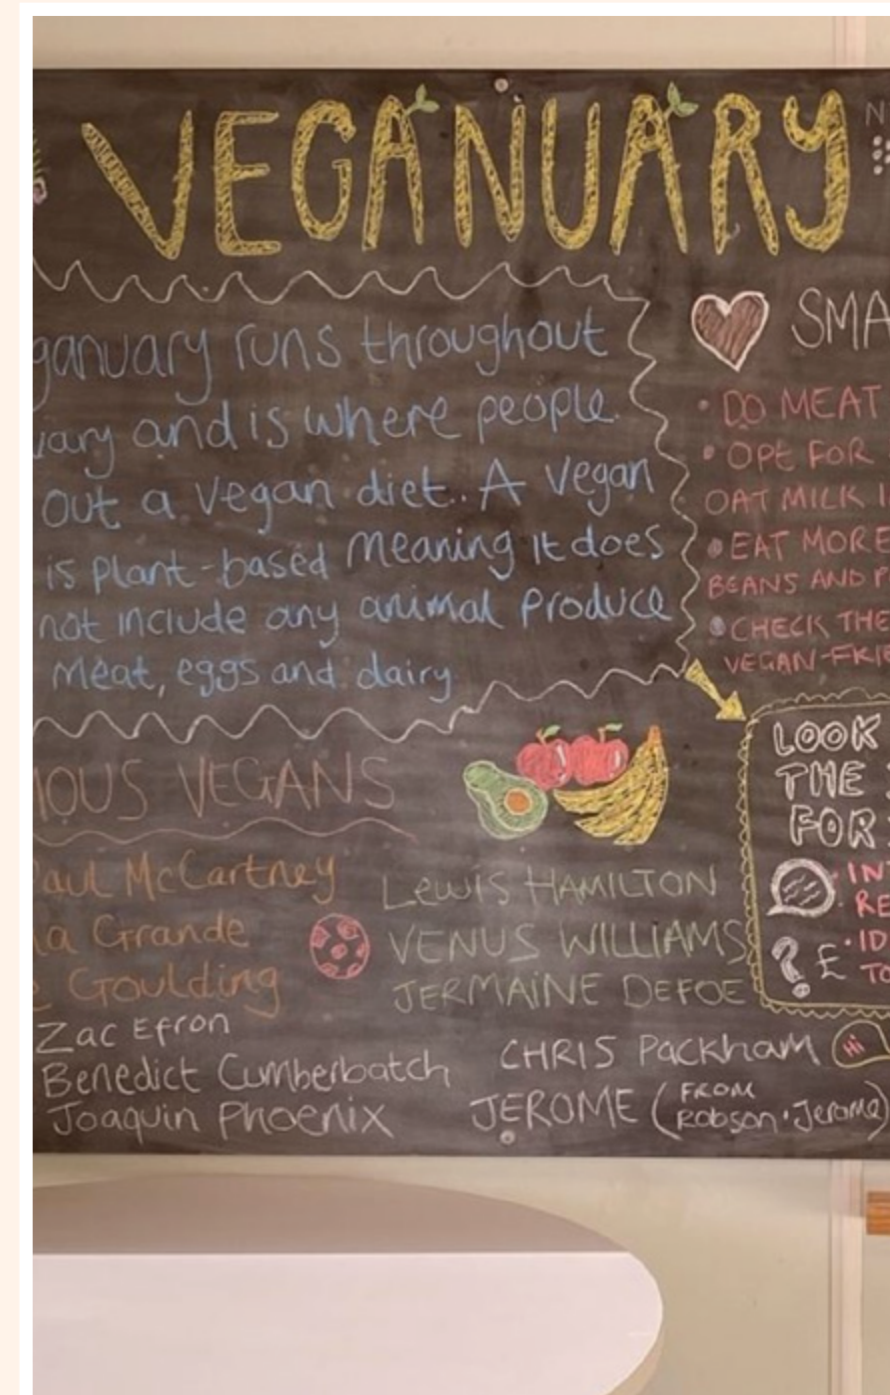 VEGANUARY
N
ganuary runs throughout
uary and is where people
out a vegan diet. A vegan
is plant-based meaning it does
not include any animal produce
meat, eggs and dairy
SMA
• DO MEAT
• OPt FOR
OAT MILK I
• EAT MORE
BEANS AND P
• CHECK THE
VEGAN-FRIE
LOOK
THE
FOR
• IN
RE
? £ • ID
TO
IOUS VEGANS
aul McCartney
a Grande
e Goulding
Zac Efron
Benedict Cumberbatch
Joaquin Phoenix
Lewis HAMILTON
VENUS WILLIAMS
JERMAINE DEFOE
CHRIS Packham
Hi
JEROME (FROM
Robson • Jerome)